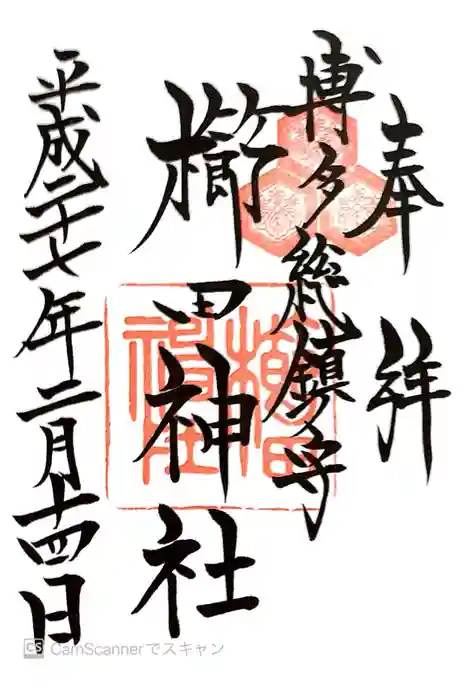 奉拝
博多総鎮守
櫛田神社
平成二十七年二月十四日
櫛田
神社
CS CamScannerでスキャン